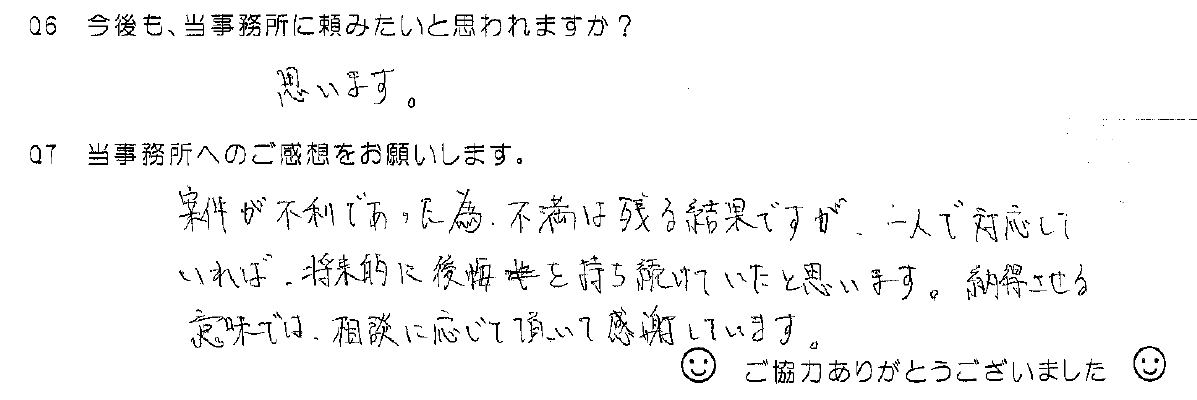 Q6 今後も、当事務所に頼みたいと思われますか？
思います。
Q7 当事務所へのご感想をお願いします。
案件が不利であった為、不満は残る結果ですが、一人で対応して
いれば、将来的に後悔を持ち続けていたと思います。納得させる
意味では、相談に応じて頂いて感謝しています。
ご協力ありがとうございました